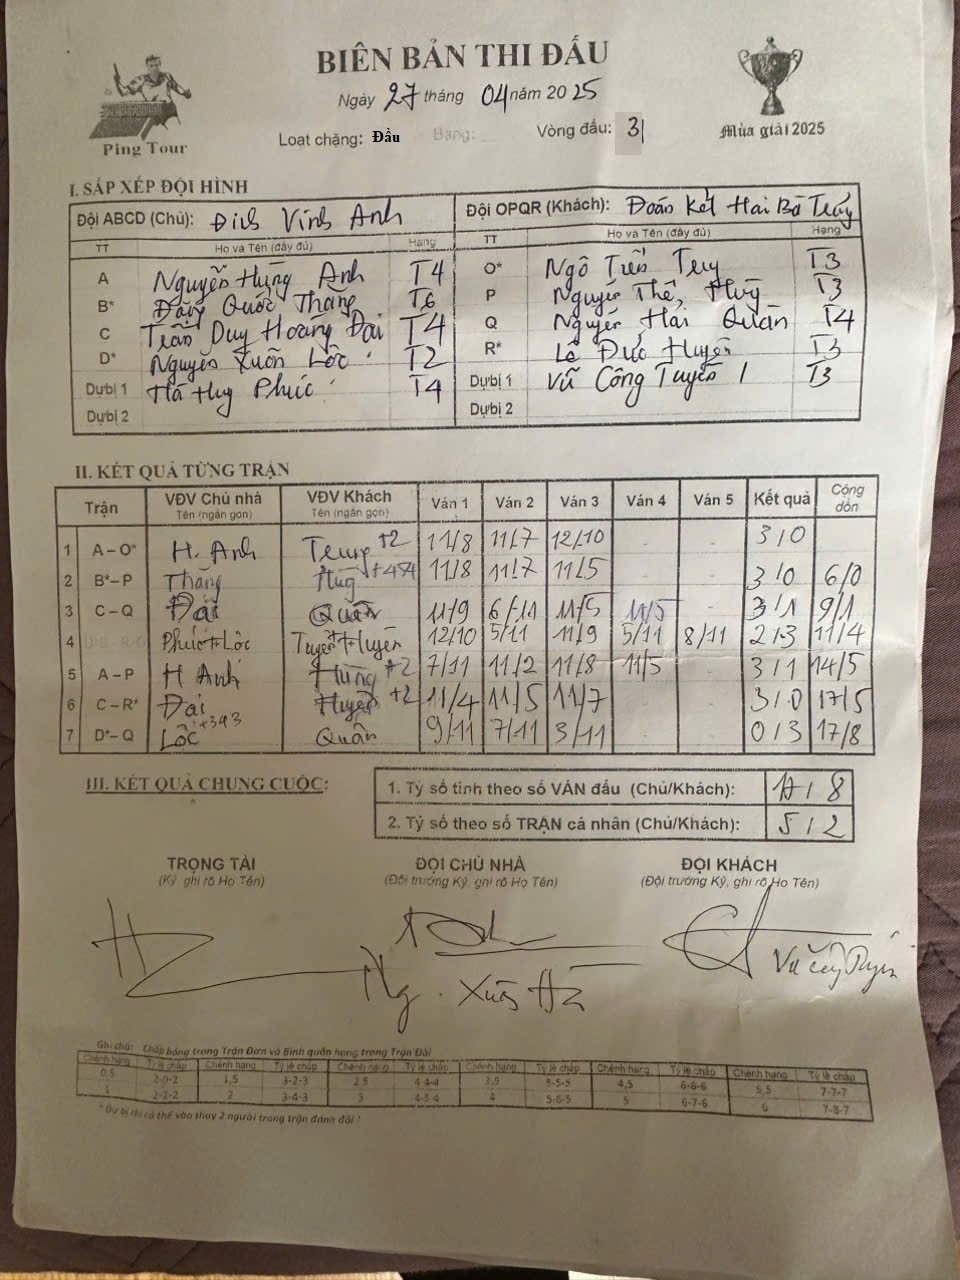 BIÊN BẢN THI ĐẤU
Ngày 27 tháng 04 năm 2025
Ping Tour
Loạt chặng: Đầu Bảng: Vòng đấu: 3
Mùa giải 2025
I. SẮP XẾP ĐỘI HÌNH
Đội ABCD (Chủ): Đinh Vinh Anh Đội OPQR (Khách): Đoàn Kết Hai Bà Trưng
TT Họ và Tên (đầy đủ) Hạng TT Họ và Tên (đầy đủ) Hạng
A Nguyễn Hùng Anh T4 O* Ngô Tiến T3
B* Đặng Quốc Thắng T6 P Nguyễn Thế Hùng T3
C Trần Duy Hoàng Đại T4 Q Nguyễn Hải Quân T4
D* Nguyễn Xuân Lộc T2 R* Lê Đức Huyên T3
Dự bị 1 Hà Huy Phúc T4 Dự bị 1 Vũ Công Tuyến T3
Dự bị 2 Dự bị 2
II. KẾT QUẢ TỪNG TRẬN
Trận VĐV Chủ nhà Tên (ngắn gọn) VĐV Khách Tên (ngắn gọn) Ván 1 Ván 2 Ván 3 Ván 4 Ván 5 Kết quả Cộng dồn
1 A – O* H. Anh +2 11/8 11/7 12/10 - - 3/0
2 B* – P Thắng Hùg +454 11/8 11/7 11/5 - - 3/0 6/0
3 C – Q Đại Quân 11/9 6/11 11/5 11/5 - 3/1 9/1
4 Phúc+Lộc Tuyến+Huyên 12/10 5/11 11/9 5/11 8/11 2/3 11/4
5 A – P H Anh Hùng +2 7/11 11/2 11/8 11/5 3/1 14/5
6 C – R* Đại Huyên +2 11/4 11/5 11/7 3/0 17/5
7 D* – Q Lộc +343 Quân 9/11 7/11 3/11 0/3 17/8
III. KẾT QUẢ CHUNG CUỘC:
1. Tỷ số tính theo số VÁN đấu (Chủ/Khách): 17/8
2. Tỷ số theo số TRẬN cá nhân (Chủ/Khách): 5/2
TRỌNG TÀI ĐỘI CHỦ NHÀ ĐỘI KHÁCH
(Ký, ghi rõ Họ Tên) (Đội trưởng Ký, ghi rõ Họ Tên) (Đội trưởng Ký, ghi rõ Họ Tên)
Ng. Xuân Hà
Ghi chú: Chấp bóng trong Trận Đơn và Bình quân hạng trong Trận Đôi
Chênh hạng Tỷ lệ chấp Chênh hạng Tỷ lệ chấp Chênh hạng Tỷ lệ chấp Chênh hạng Tỷ lệ chấp Chênh hạng Tỷ lệ chấp Chênh hạng Tỷ lệ chấp
0,5 2-0-2 1,5 3-2-3 2,5 4-4-4 3,5 5-5-5 4,5 6-6-6 5,5 7-7-7
1 2-2-2 2 3-4-3 3 4-5-4 4 5-6-5 5 6-7-6 6 7-8-7
* Dự bị chỉ có thể vào thay 2 người trong trận đánh đôi !